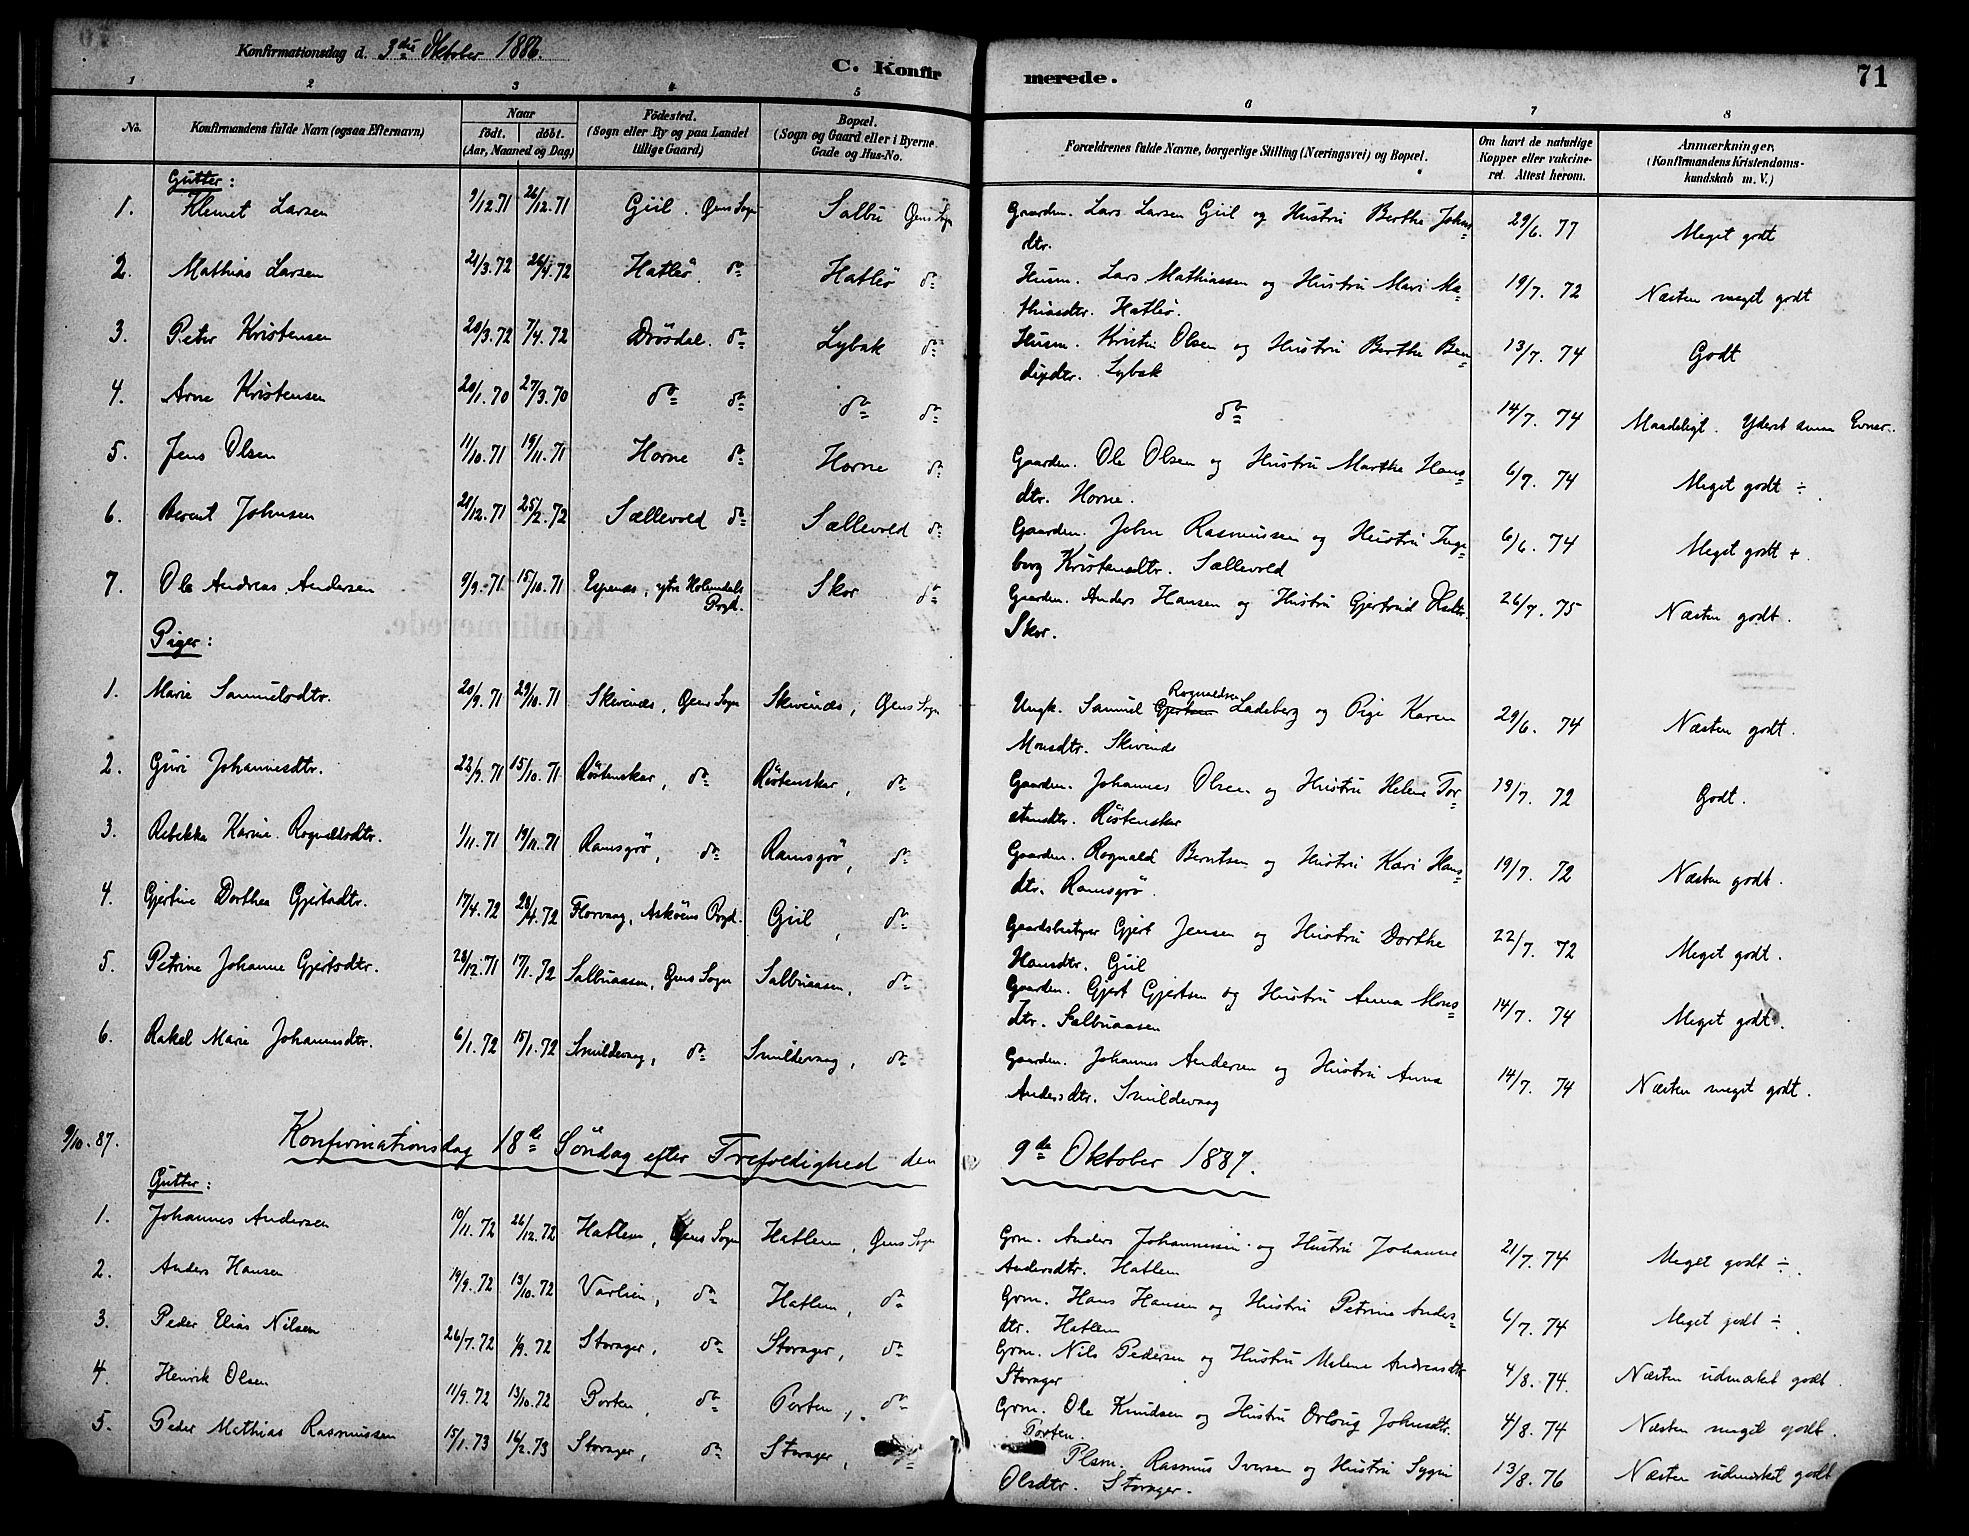 Konfirmationsdag d. 3die Oktober 1886.
C. Konfirmerede.
71
1 2 3 4 5 6 7 8
No.
Konfirmandens fulde Navn (ogsaa Efternavn)
Naar
födt. döbt.
(Aar, Maaned og Dag)
Födested.
(Sogn eller By og paa Landet tillige Gaard)
Bopæl.
(Sogn og Gaard eller i Byerne Gade og Hus-No.
Forældrenes fulde Navne, borgerlige Stilling (Næringsvei) og Bopæl.
Om havt de naturlige Kopper eller vakcineret. Attest herom.
Anmærkninger, (Konfirmandens Kristendomskundskab m. V.)
Gutter:
1. Klemet Larsen 9/12.71 26/12.71 Giil. Gens Sogn Salbu Gens Sogn Gaardm. Lars Larsen Giil og Hustru Berthe Johnsdtr. 29/6. 77 Meget godt
2. Mathias Larsen 21/3.72 26/4.72 Hatlö. do Hatlö do Husm. Lars Mathiassen og Hustru Mari Mathiasdtr. Hatlö. 19/7. 72 Næsten meget godt
3. Peter Kristensen 20/3.72 7/4.72 Drösdal. do Lybak do Husm. Kristen Olsen og Hustru Berthe Bendixdtr. Lybak 13/7. 74 Godt
4. Arne Kristensen 20/1.70 27/3.70 do do do do do 14/7. 74 Maadeligt. Yderst svage Evner.
5. Jens Olsen 11/10.71 19/11.71 Horne do Horne do Gaardm. Ole Olsen og Hustru Marthe Hansdtr. Horne. 6/7. 74 Meget godt ÷.
6. Berent Johnsen 21/12.71 25/2.72 Sællevold do Sællevold do Gaardm. John Rasmussen og Hustru Ingeborg Kristensdtr. Sællevold 6/6. 74 Meget godt +
7. Ole Andreas Andersen 9/9.71 15/10.71 Espenæs, ytre Holmedals Prgd. Skor do Gaardm. Anders Hansen og Hustru Gjertrud Olsdtr. Skor. 26/7. 75 Næsten godt.
Piger:
1. Marie Samuelsdtr. 20/9.71 29/10.71 Skivenæs, Gens Sogn Skivenæs, Gens Sogn Ungk. Samuel Gjertsen Rognaldsen Ladeberg og Pige Karen Monsdtr. Skivenæs 29/6. 74 Næsten godt.
2. Guri Johannesdtr. 22/9.71 15/10.71 Röstenskar, do Röstenskar, do Gaardm. Johannes Olsen og Hustru Helene Torstensdtr. Röstenskar 19/7. 72 Godt.
3. Rebekka Karine Rognaldsdtr. 1/11.71 19/11.71 Ramsgrö, do Ramsgrö, do Gaardm. Rognald Berntsen og Hustru Kari Hansdtr. Ramsgrö. 19/7. 72 Næsten godt.
4. Gjertine Dorthea Gjertsdtr. 17/4.72 28/4.72 Florvaag, Asköens Prgd. Giil, do Gaardsbestyrer Gjert Jensen og Hustru Dorthe Hansdtr. Giil 22/7. 72 Meget godt.
5. Petrine Johanne Gjertsdtr. 28/12.71 17/1.72 Salbuaasen, Gens Sogn Salbuaasen, do Gaardm. Gjert Gjertsen og Hustru Anna Monsdtr. Salbuaasen 14/7. 74 Meget godt.
6. Rakel Marie Johannesdtr. 6/1.72 15/1.72 Smildevaag, do Smildevaag, do Gaardm. Johannes Andersen og Hustru Anna Andersdtr. Smildevaag 14/7. 74 Næsten meget godt.
9/10.87. Konfirmationsdag 18de Söndag efter Trefoldighed den 9de Oktober 1887.
Gutter:
1. Johannes Andersen 10/11.72 26/12.72 Hatlem, Gens Sogn Hatlem, Gens Sogn Grm. Anders Johannessen og Hustru Johanne Andersdtr. Hatlem 21/7. 74 Meget godt ÷.
2. Anders Hansen 19/9.72 13/10.72 Varlien, do Hatlem, do Grm. Hans Hansen og Hustru Petrine Andersdtr. Hatlem 6/7. 74 Meget godt ÷.
3. Peder Elias Nilsen 26/7.72 1/9.72 Storager, do Storager, do Grm. Nils Pedersen og Hustru Malene Andreasdtr Storager 4/8. 74. Næsten udmærket godt.
4. Henrik Olsen 11/9.72 13/10.72 Porten, do Porten, do Grm. Ole Knudsen og Hustru Orloug Johnsdtr. Porten. 4/8. 74 Næsten meget godt.
5. Peder Mathias Rasmussen 15/1.73 16/2.73 Storager, do Storager, Plsm. Rasmus Iversen og Hustru Sygni Olsdtr. Storager. 13/8. 76 Næsten udmærket godt